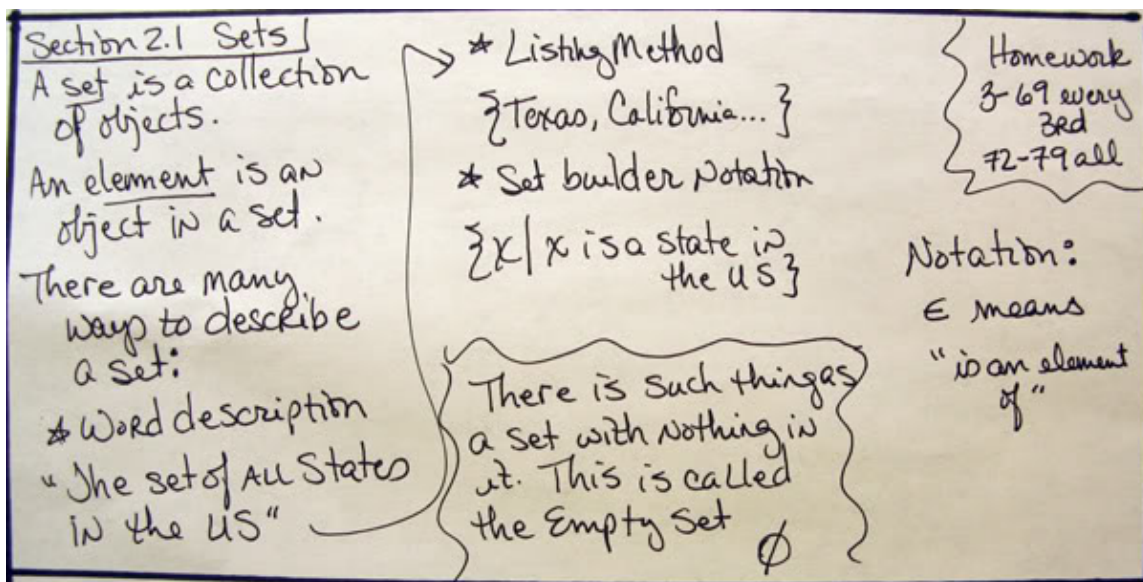 Section 2.1 Sets
A set is a collection
of objects.
An element is an
object in a set.
There are many
ways to describe
a set:
* Word description
"The set of ALL States
in the US"
* Listing Method
{Texas, California...}
* Set builder Notation
{x | x is a state in
the US}
There is such thing as
a set with nothing in
it. This is called
the Empty Set
∅
Homework
3-69 every
3rd
72-79 all
Notation:
∈ means
"is an element
of"